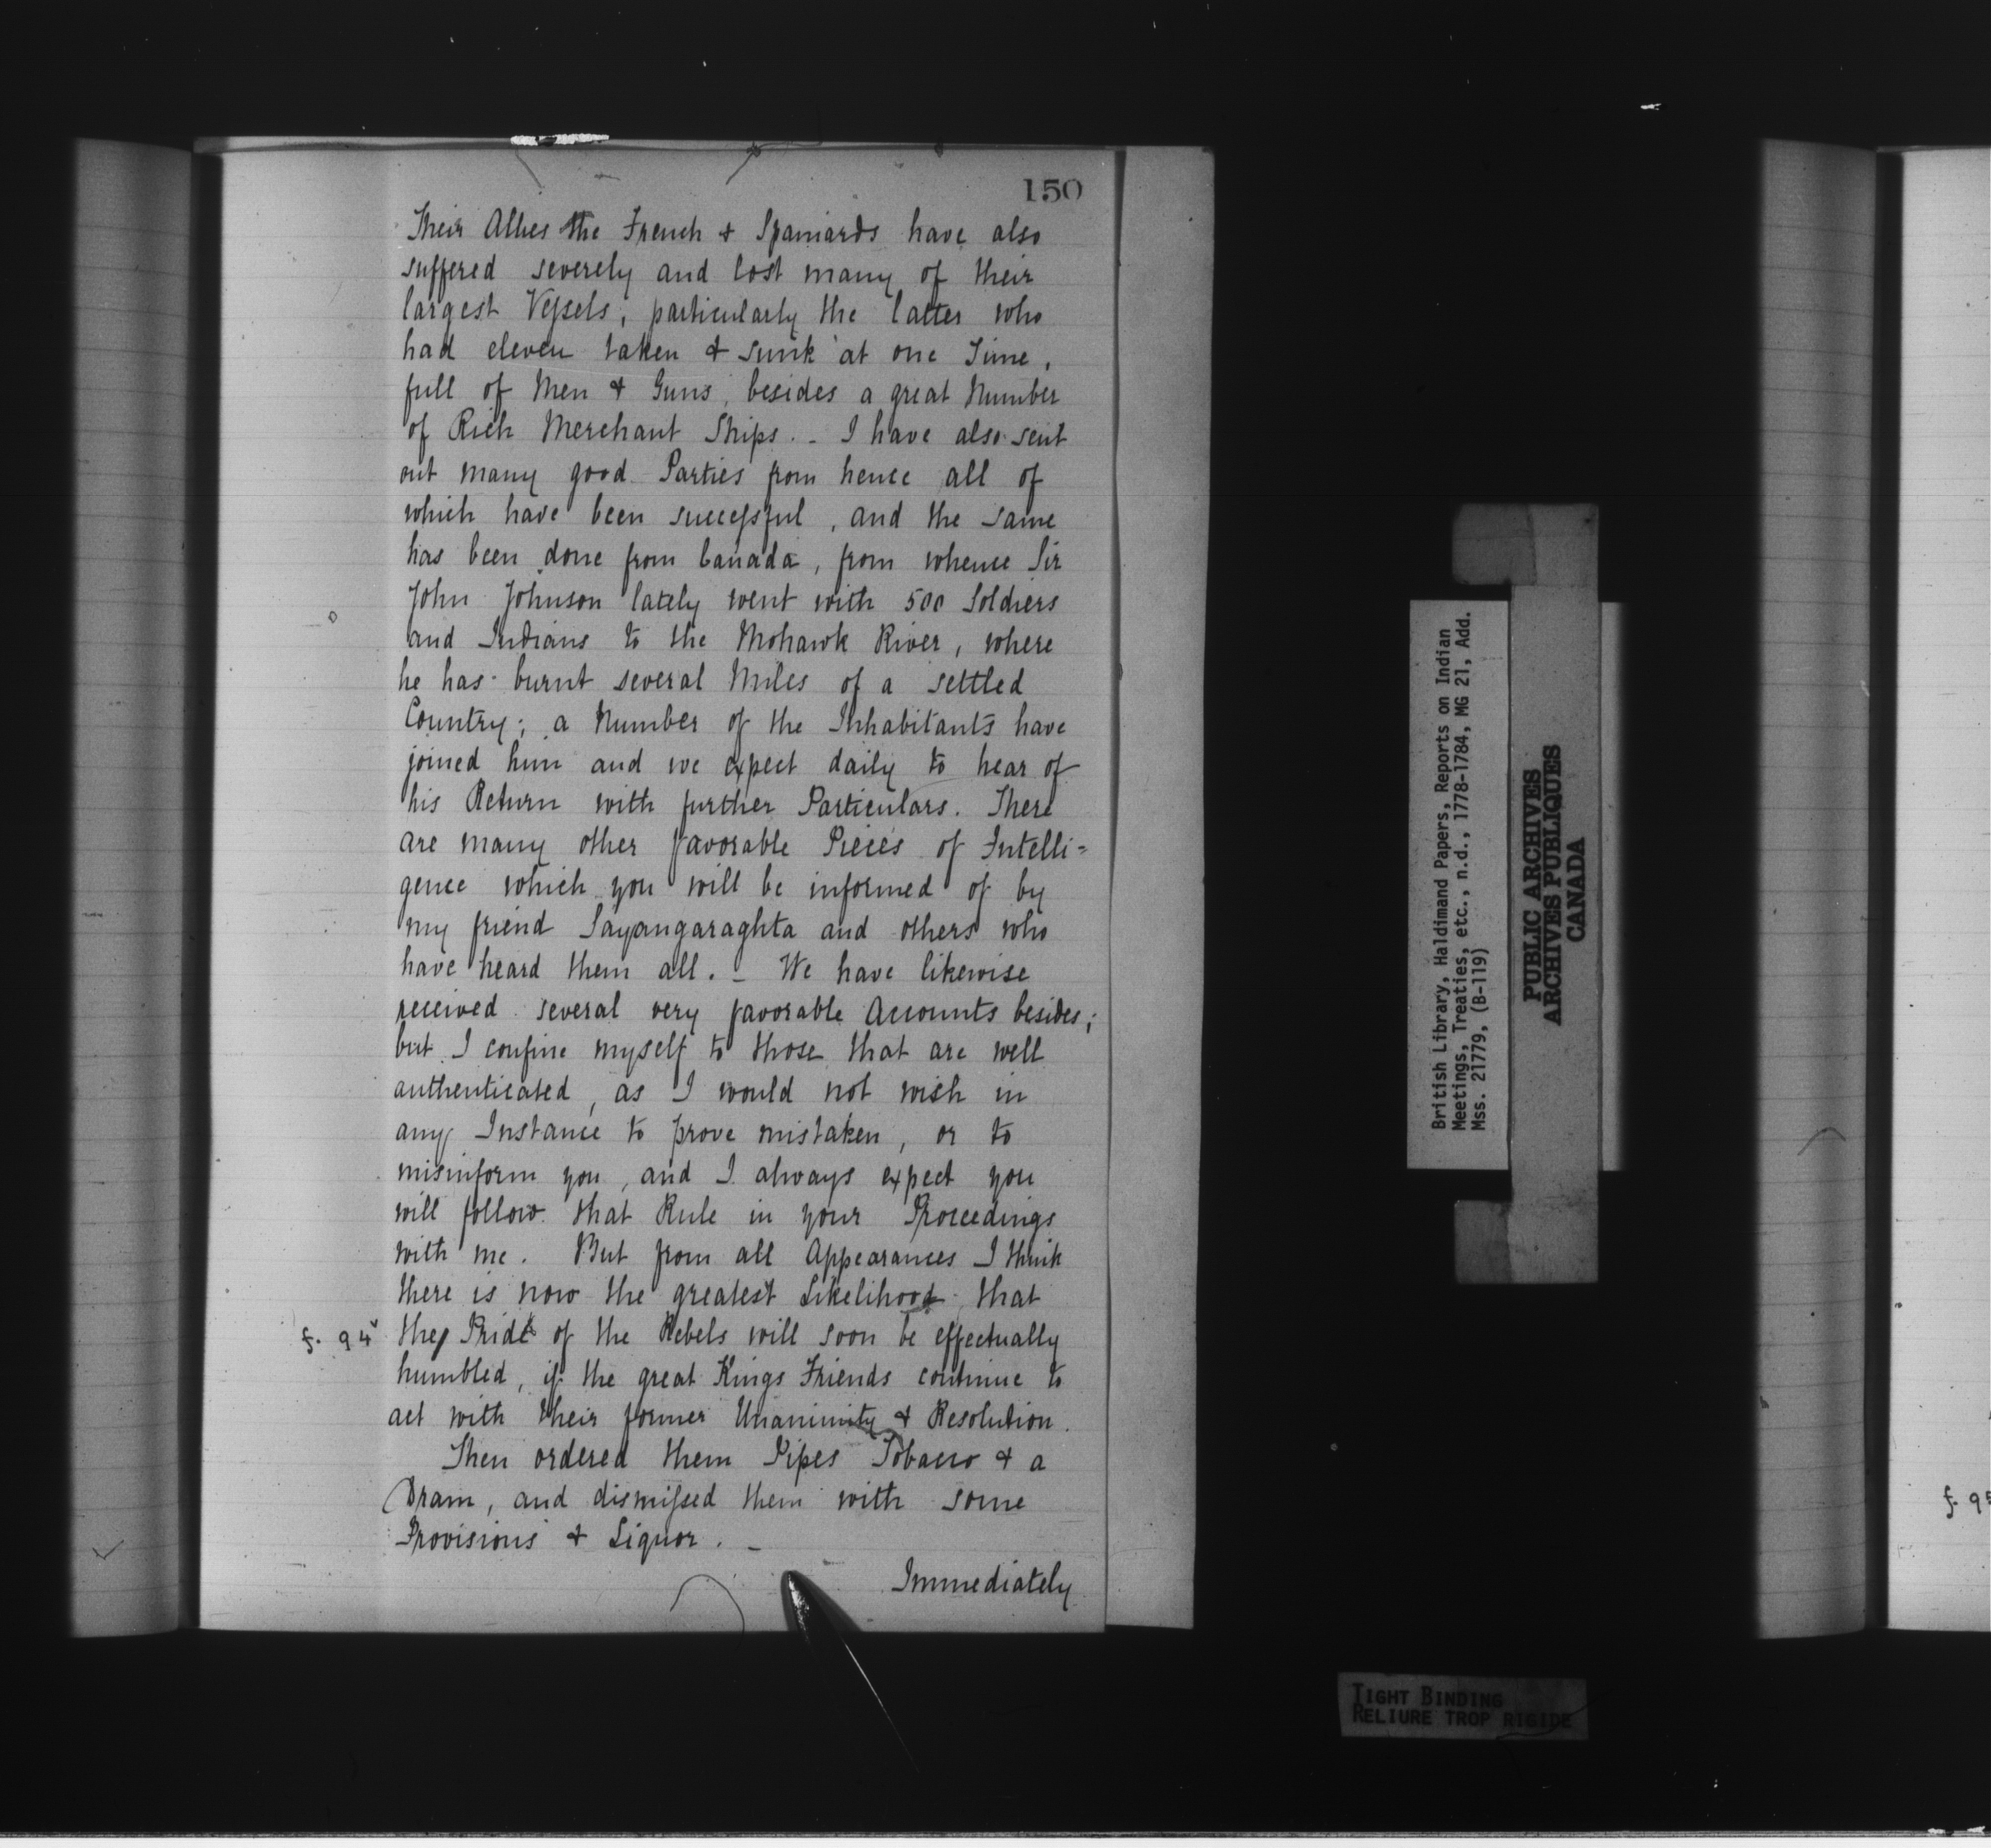 150
Their Allies the French & Spaniards have also
suffered severely and lost many of their
largest Vessels, particularly the latter who
had eleven taken & sunk at one Time,
full of Men & Guns, besides a great Number
of Rich Merchant Ships. - I have also sent
out many good Parties from hence all of
which have been successful, and the same
has been done from Canada, from whence Sir
John Johnson lately went with 500 Soldiers
and Indians to the Mohawk River, where
he has burnt several Miles of a settled
Country; a Number of the Inhabitants have
joined him and we expect daily to hear of
his Return with further Particulars. There
are many other favorable Pieces of Intelli=
gence which you will be informed of by
my friend Sayangaraghta and others who
have heard them all. - We have likewise
received several very favorable Accounts besides;
but I confine myself to those that are well
authenticated, as I would not wish in
any Instance to prove mistaken, or to
misinform you, and I always expect you
will follow that Rule in your Proceedings
with me. But from all Appearances I think
there is now the greatest Likelihood that
f. 94v the Pride of the Rebels will soon be effectually
humbled, if the great Kings Friends continue to
act with their former Unanimity & Resolution.
Then ordered them Pipes Tobacco & a
Dram, and dismissed them with some
Provisions & Liquor. -
Immediately
British Library, Haldimand Papers, Reports on Indian
Meetings, Treaties, etc., n.d., 1778-1784, MG 21, Add.
Mss. 21779, (B-119)
PUBLIC ARCHIVES
ARCHIVES PUBLIQUES
CANADA
TIGHT BINDING
RELIURE TROP RIGIDE
f. 95